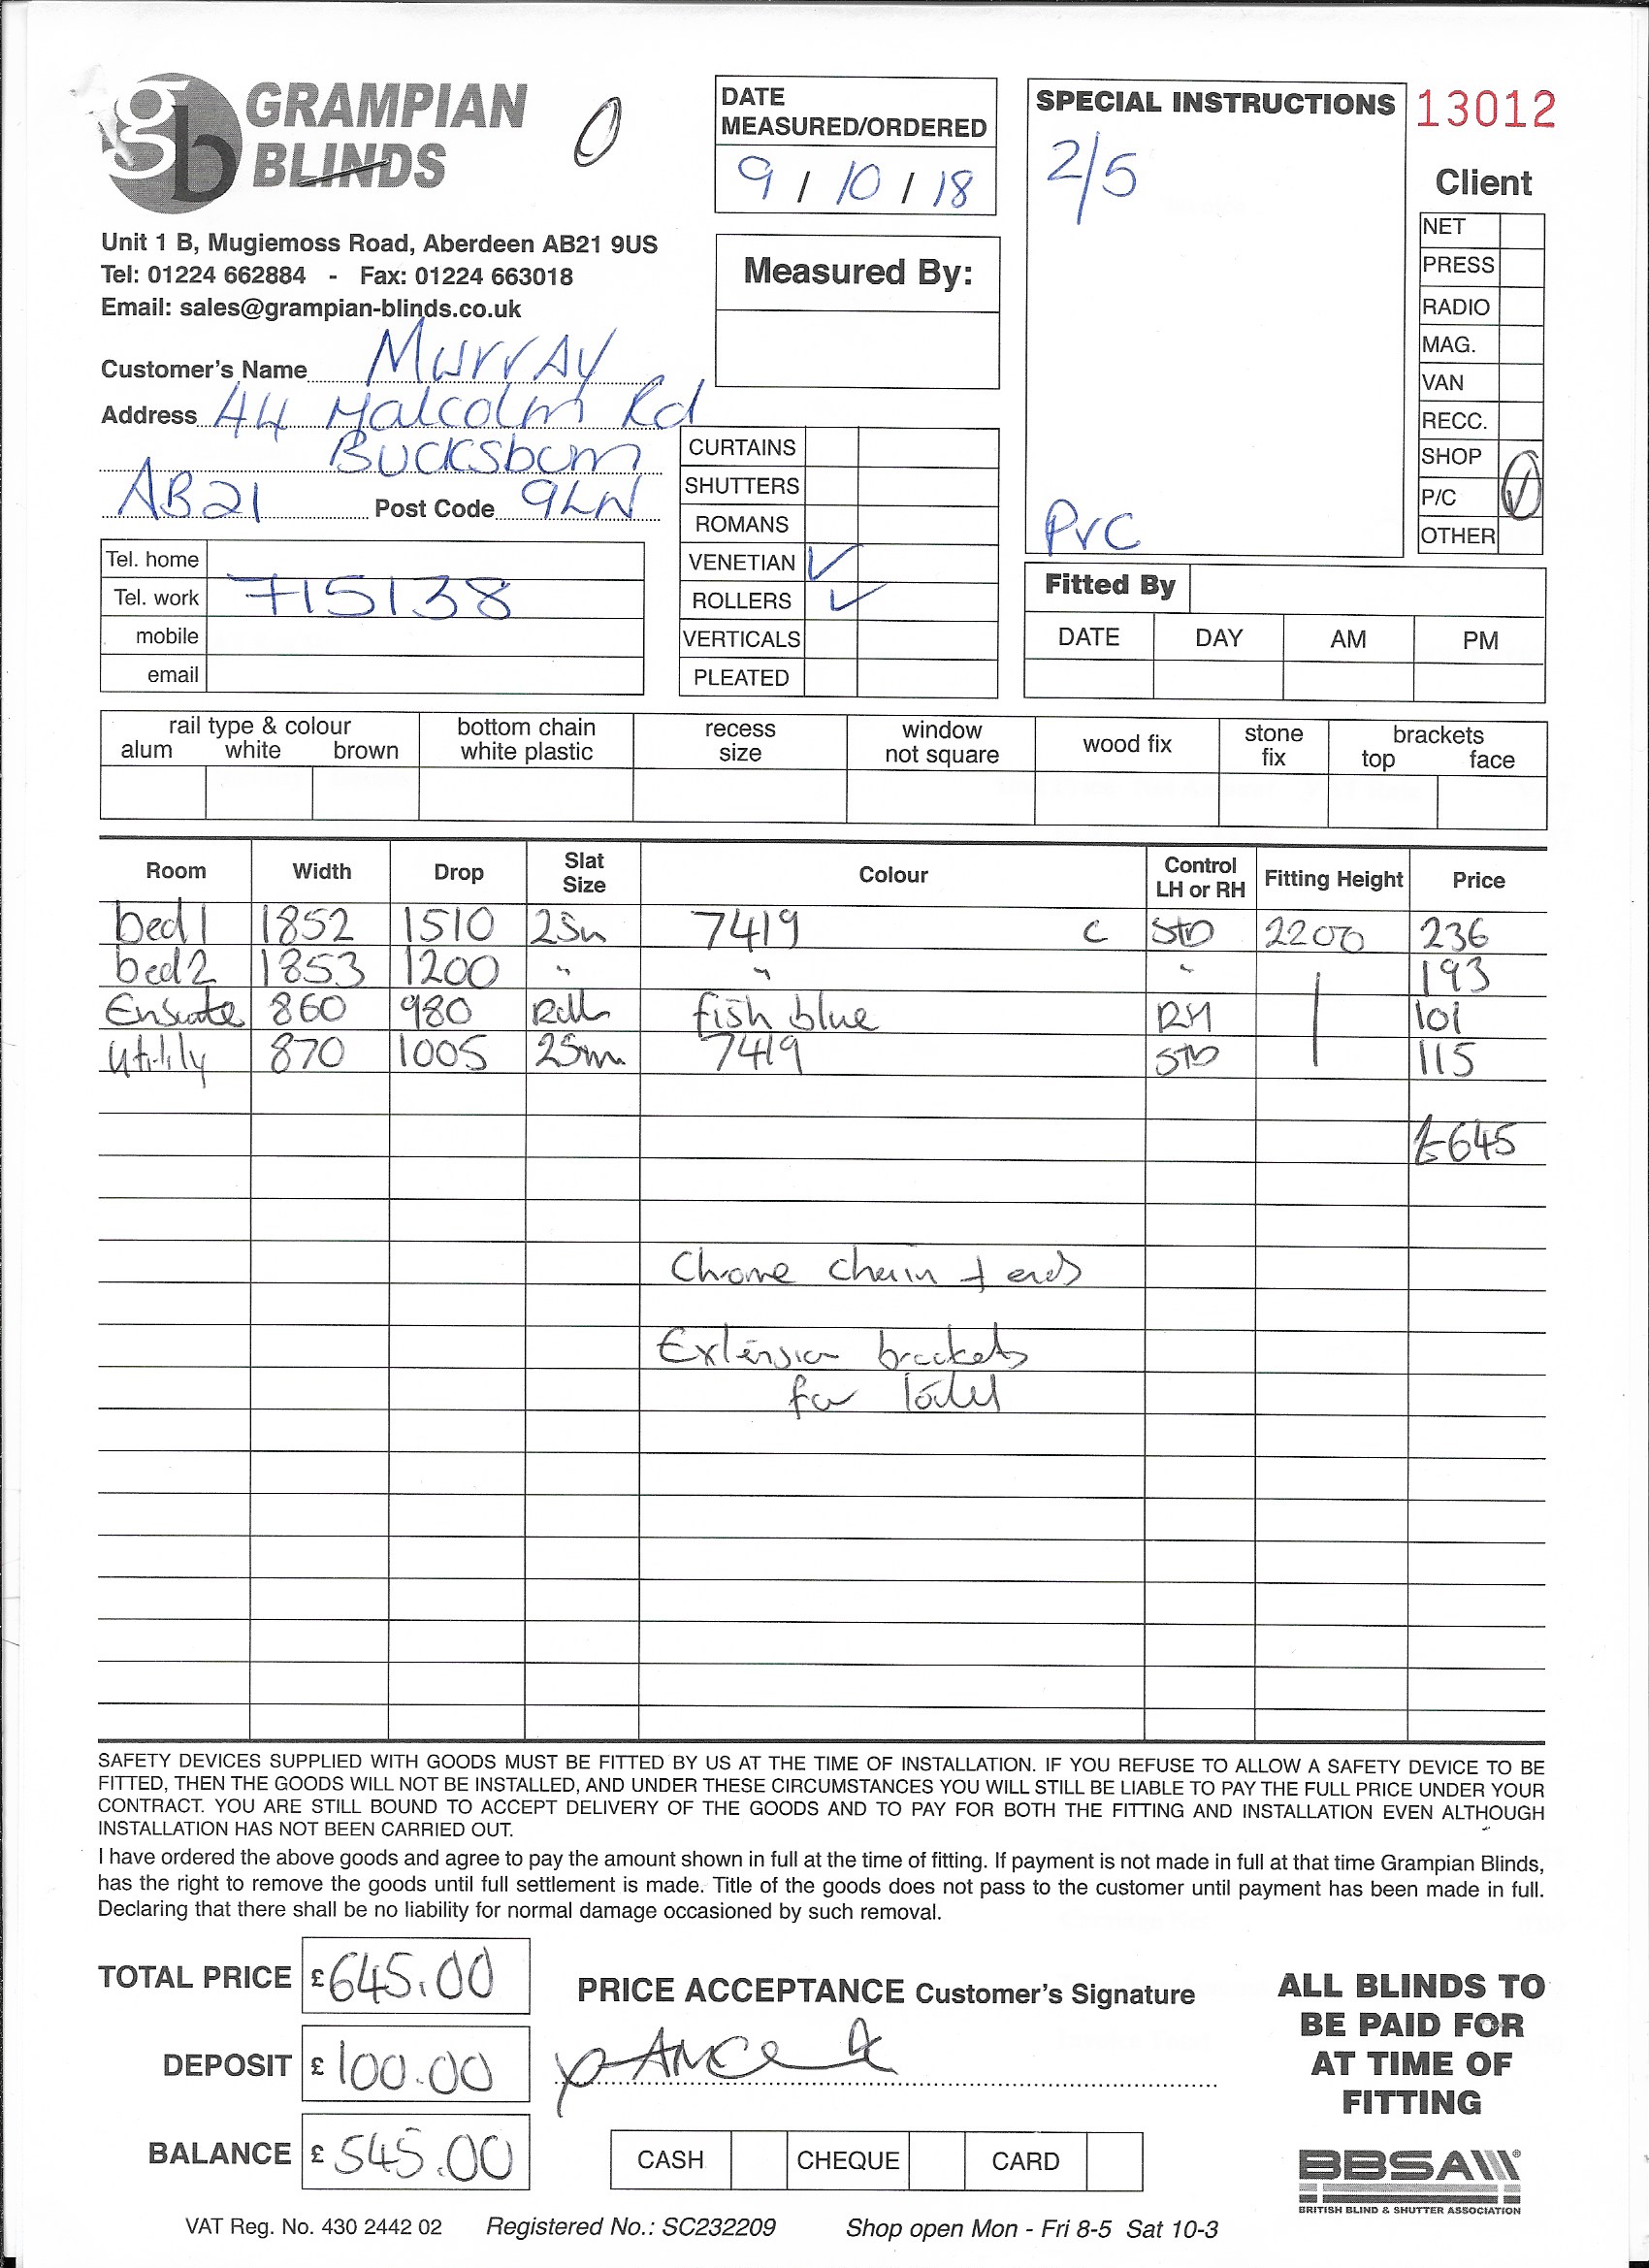 gb GRAMPIAN
BLINDS
Unit 1 B, Mugiemoss Road, Aberdeen AB21 9US
Tel: 01224 662884 - Fax: 01224 663018
Email: sales@grampian-blinds.co.uk
Customer's Name Murray
Address 44 Malcolm Rd
Bucksburn
AB21 Post Code 9LN
Tel. home
Tel. work 715138
mobile
email
DATE
MEASURED/ORDERED
9 / 10 / 18
Measured By:
CURTAINS
SHUTTERS
ROMANS
VENETIAN ✓
ROLLERS ✓
VERTICALS
PLEATED
SPECIAL INSTRUCTIONS
2/5
PVC
13012
Client
NET
PRESS
RADIO
MAG.
VAN
RECC.
SHOP
P/C ✓
OTHER
Fitted By
DATE DAY AM PM
rail type & colour bottom chain recess window wood fix stone brackets
alum white brown white plastic size not square fix top face
Room Width Drop Slat Size Colour Control LH or RH Fitting Height Price
bed1 1852 1510 25m 7419 C STD 2200 236
bed2 1853 1200 " " " 193
Ensuite 860 980 Roll fish blue RH 101
Utility 870 1005 25mm 7419 STD 115
£645
Chrome chain + ends
Extension brackets
for toilet
SAFETY DEVICES SUPPLIED WITH GOODS MUST BE FITTED BY US AT THE TIME OF INSTALLATION. IF YOU REFUSE TO ALLOW A SAFETY DEVICE TO BE
FITTED, THEN THE GOODS WILL NOT BE INSTALLED, AND UNDER THESE CIRCUMSTANCES YOU WILL STILL BE LIABLE TO PAY THE FULL PRICE UNDER YOUR
CONTRACT. YOU ARE STILL BOUND TO ACCEPT DELIVERY OF THE GOODS AND TO PAY FOR BOTH THE FITTING AND INSTALLATION EVEN ALTHOUGH
INSTALLATION HAS NOT BEEN CARRIED OUT.
I have ordered the above goods and agree to pay the amount shown in full at the time of fitting. If payment is not made in full at that time Grampian Blinds,
has the right to remove the goods until full settlement is made. Title of the goods does not pass to the customer until payment has been made in full.
Declaring that there shall be no liability for normal damage occasioned by such removal.
TOTAL PRICE £645.00
DEPOSIT £100.00
BALANCE £545.00
PRICE ACCEPTANCE Customer's Signature
CASH CHEQUE CARD
ALL BLINDS TO
BE PAID FOR
AT TIME OF
FITTING
BBSA
BRITISH BLIND & SHUTTER ASSOCIATION
VAT Reg. No. 430 2442 02 Registered No.: SC232209 Shop open Mon - Fri 8-5 Sat 10-3